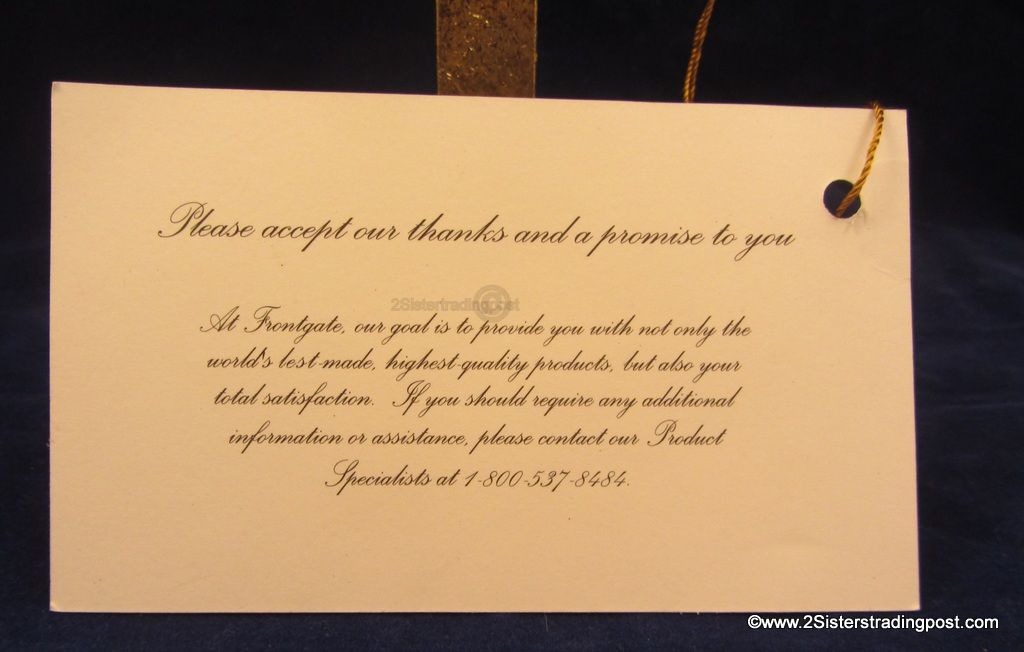 Please accept our thanks and a promise to you
2Sistertradingpost
©
At Frontgate, our goal is to provide you with not only the
world's best-made, highest-quality products, but also your
total satisfaction. If you should require any additional
information or assistance, please contact our Product
Specialists at 1-800-537-8484.
©www.2Sisterstradingpost.com